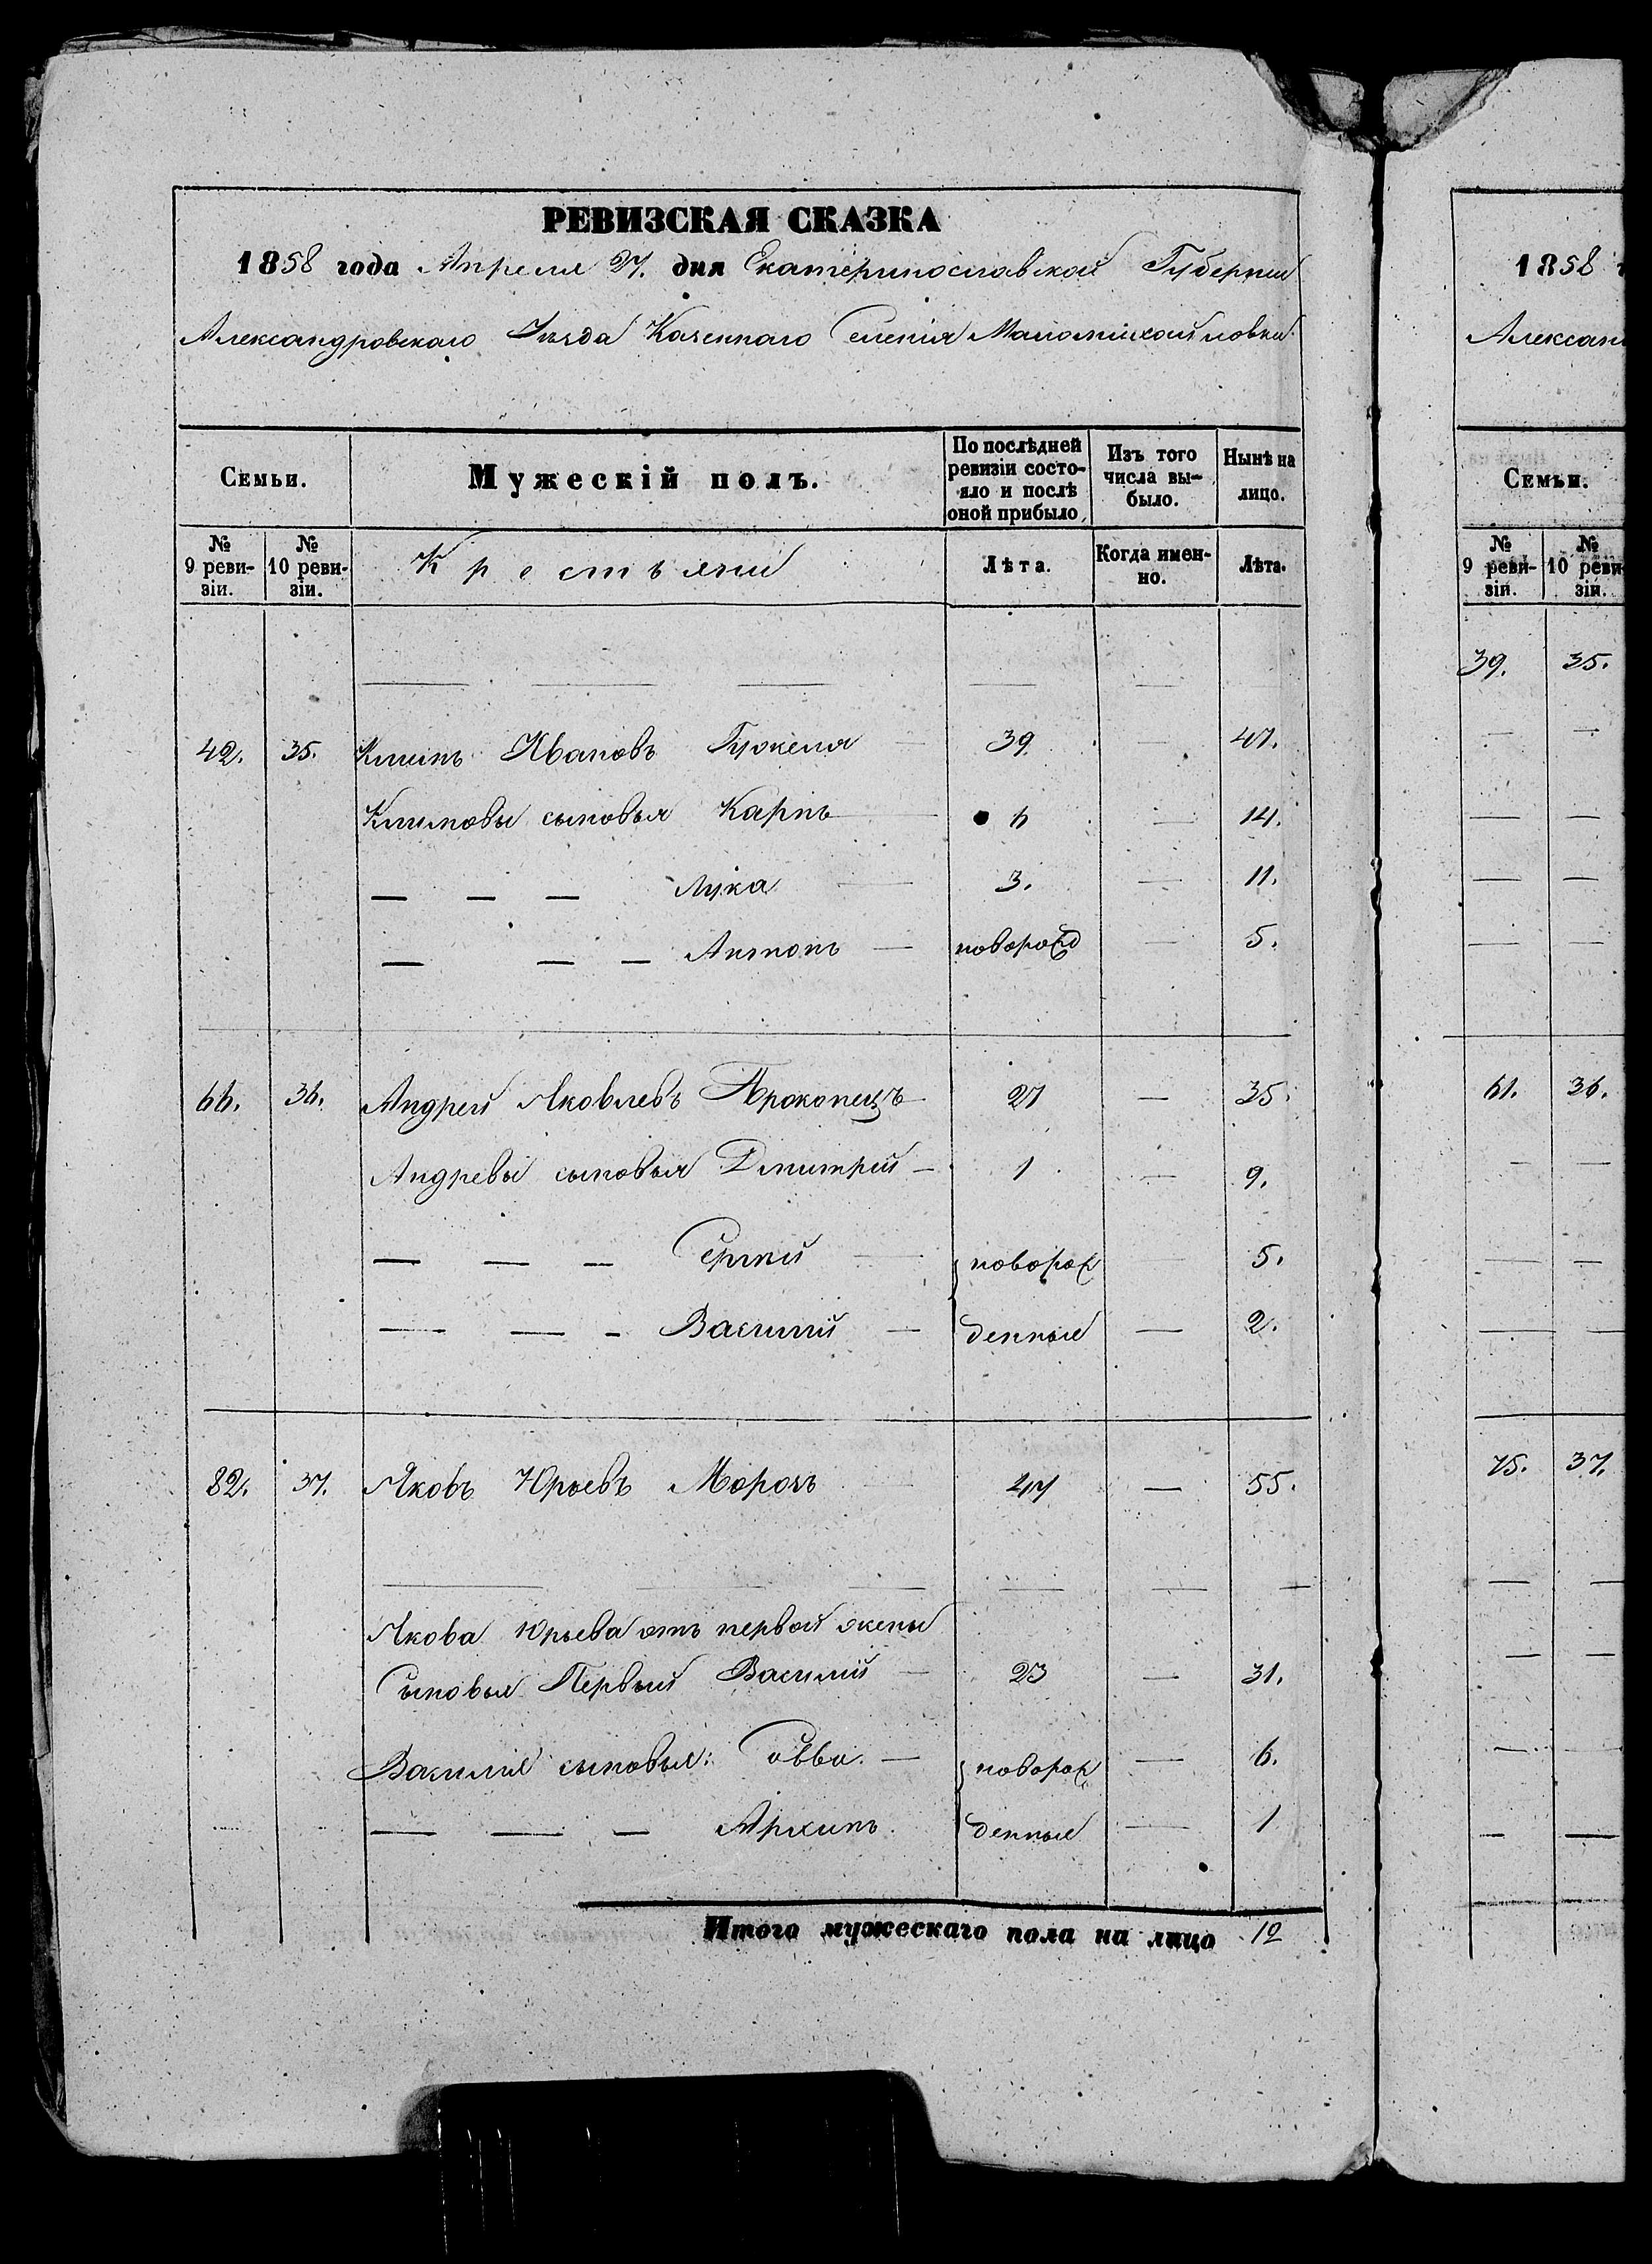 РЕВИЗСКАЯ СКАЗКА
1858 года Апреля 27. дня Екатеринославской Губернии
Александровскаго Уѣзда Казеннаго Селенія Маломихайловки
Семьи.
Мужескій полъ.
По послѣдней ревизіи состояло и послѣ оной прибыло,
Изъ того числа выбыло.
Нынѣ на лицо.
№ 9 ревизіи.
№ 10 ревизіи.
Крестьяни
Лѣта.
Когда именно.
Лѣта.
42. 35. Климъ Ивановъ 39 — 47.
Климовы сыновья Карпъ — 6 — 14.
— — — Лука — 3. — 11.
— — — Антонъ —новорожд — 5.
66. 36. Андрей Яковлевъ Прокопецъ 27 — 35.
Андревы сыновья Дмитрій — 1 — 9.
— — — Сергий — новорож — 5.
— — — Василий — денные — 2.
82. 37. Яковъ Юрьевъ Морозъ — 47 — 55.
Якова Юрьева отъ первой жены
Сыновья Первый Василий — 23 — 31.
Василия сыновья: Савва. — новорож — 6.
— — — Архипъ. денные — 1
Итого мужескаго пола на лицо 12
1858
Алексан
Семьи.
№ 9 ревизіи.
№ 10 реви зіи.
39. 35.
61. 36.
75. 37.